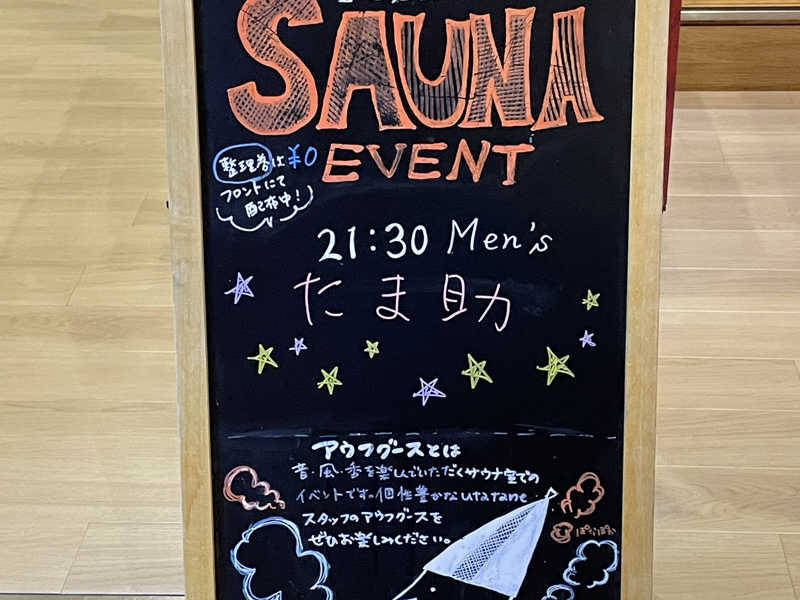 SAUNA
EVENT
整理券は¥0
フロントにて
配布中!
21:30 Men's
たま助
アウフグースとは
音・風・香を楽しんでいただくサウナ室での
イベントです。個性豊かなutatane
スタッフのアウフグースを
ぜひお楽しみください。
ぽかぽか